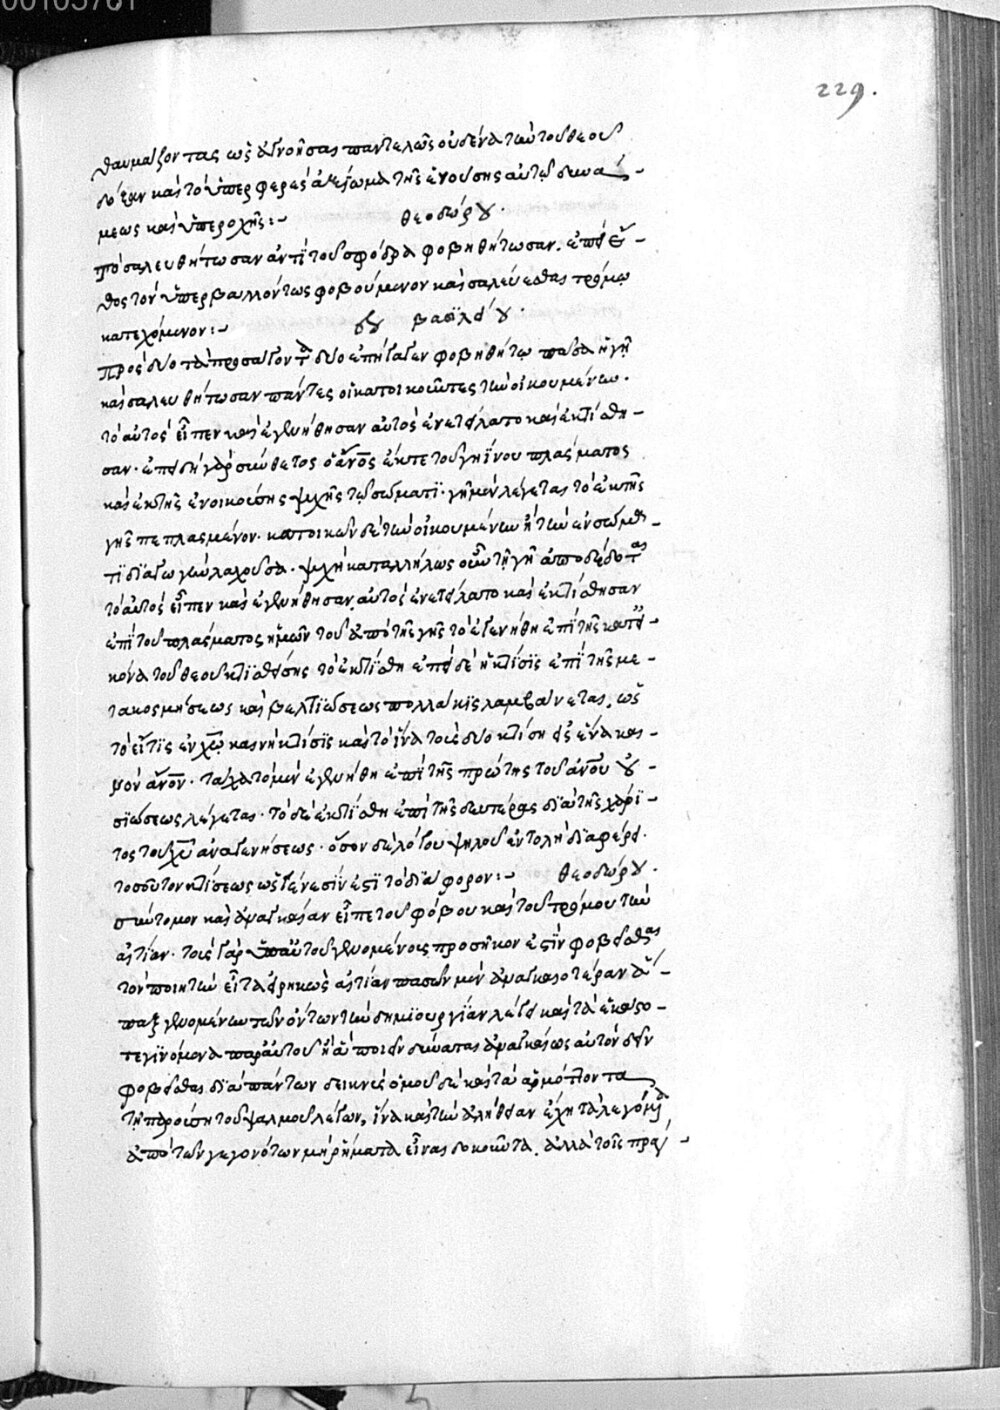 00105761
229.
θαυμάζοντας ὡς ἀγνοῆσαι παντελῶς οὐδένα τὴν τοῦ θεοῦ
δόξαν καὶ τὸ ὑπερφερὲς ἀξίωμα τῆς ἐνούσης αὐτῷ δυνά-
μεως καὶ ὑπεροχῆς:-
θεοδώρου.
τὸ σαλευθήτωσαν ἀντὶ τοῦ σφόδρα φοβηθήτωσαν. ἐπεὶ ἔ-
θος τὸν ὑπερβαλλόντως φοβούμενον καὶ σαλεύεσθαι τρόμῳ
κατεχόμενον:-
βασιλείου.
πρὸς δύο τὰ προσάγοντα δύο ἐπήγαγεν φοβηθήτω πᾶσα ἡ γῆ
καὶ σαλευθήτωσαν πάντες οἱ κατοικοῦντες τὴν οἰκουμένην.
τὸ αὐτὸς εἶπεν καὶ ἐγενήθησαν αὐτὸς ἐνετείλατο καὶ ἐκτίσθη-
σαν. ἐπειδὴ γὰρ σύνθετος ὁ ἄνος ἔκ τε τοῦ γηΐνου πλάσματος
καὶ ἐκ τῆς ἐνοικούσης ψυχῆς τῷ σώματι. γῆ μὲν λέγεται τὸ ἐκ τῆς
γῆς πεπλασμένον. κατοικῶν δὲ τὴν οἰκουμένην ἡ τὴν ἐν σώμα-
τι διαγωγὴν λαχοῦσα. ψυχὴ καταλλήλως οὖν τῇ γῇ ἀποδέδοται
τὸ αὐτὸς εἶπεν καὶ ἐγενήθησαν αὐτὸς ἐνετείλατο καὶ ἐκτίσθησαν
ἐπὶ τοῦ πλάσματος ἡμῶν τοῦ ἀπὸ τῆς γῆς τὸ ἐγενήθη ἐπὶ τῆς κατ' εἰ-
κόνα τοῦ θεοῦ κτισθείσης τὸ ἐκτίσθη ἐπεὶ δὲ ἡ κτίσις ἐπὶ τῆς με-
τακοσμήσεως καὶ βελτιώσεως πολλάκις λαμβάνεται. ὡς
τὸ εἴ τις ἐν χῷ καινὴ κτίσις καὶ τὸ ἵνα τοὺς δύο κτίσῃ εἰς ἕνα και-
νὸν ἄνον. τάχα τὸ μὲν ἐγενήθη ἐπὶ τῆς πρώτης τοῦ ἀνου οὐ-
σιώσεως λέγεται. τὸ δὲ ἐκτίσθη ἐπὶ τῆς δευτέρας διὰ τῆς χάρι-
τος τοῦ χυ ἀναγεννήσεως. ὅσον δὲ λόγου ψιλοῦ ἐντολὴ διαφέρει.
τοσοῦτον κτίσεως ὡς γένεσίν ἐστι τὸ διάφορον:-
θεοδώρου.
σύντομον καὶ ἀναγκαίαν εἶπε τοῦ φόβου καὶ τοῦ τρόμου τὴν
αἰτίαν. τοῖς γὰρ ὑπ' αὐτοῦ γενομένοις προσῆκον ἐστὶν φοβεῖσθαι
τὸν ποιητὴν εἶτα εἰρηκὼς αἰτίαν πασῶν μὲν ἀναγκαιοτέραν ἅ-
παξ γενομένων τῶν ὄντων τὴν δημιουργίαν λέγει καὶ τὰ ἑκάστο-
τε γινόμενα παρ' αὐτοῦ ἢ ἃ ποιεῖν δύναται ἀναγκαίως αὐτὸν δεῖν
φοβεῖσθαι διὰ πάντων δεικνὺς ὁμοῦ δὲ καὶ τὰ ἁρμόττοντα
τῇ παρούσῃ τοῦ ψαλμοῦ λέγων, ἵνα καὶ τὴν ἀλήθειαν ἔχῃ τὰ λεγόμενα
ἀπὸ τῶν γεγονότων μὴ ῥήματα εἶναι δοκοῦντα. ἀλλὰ τοῖς πρά-